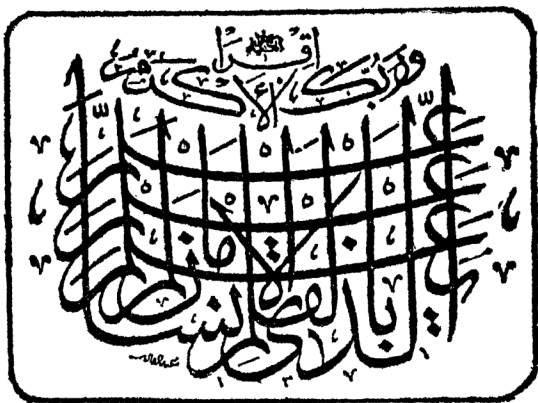 اقرأ
وربك الأكرم
الذي علم بالقلم علم الإنسان ما لم يعلم